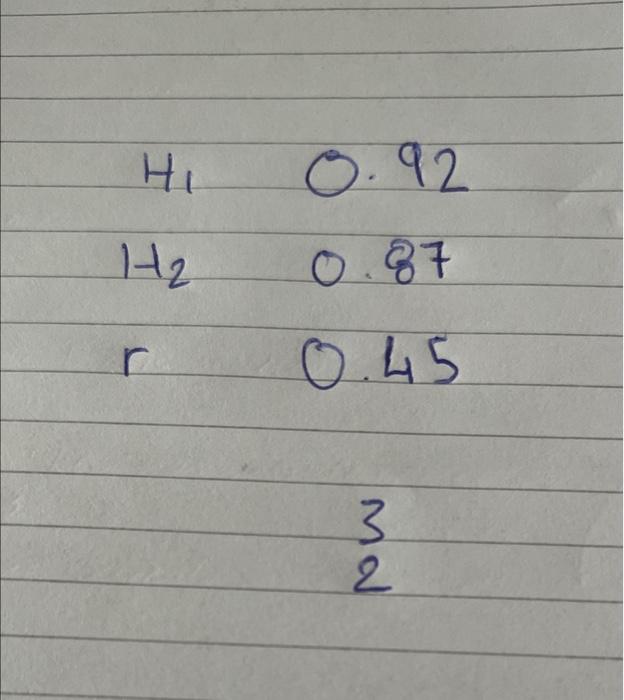 H1 0.92
H2 0.87
r 0.45
3
2